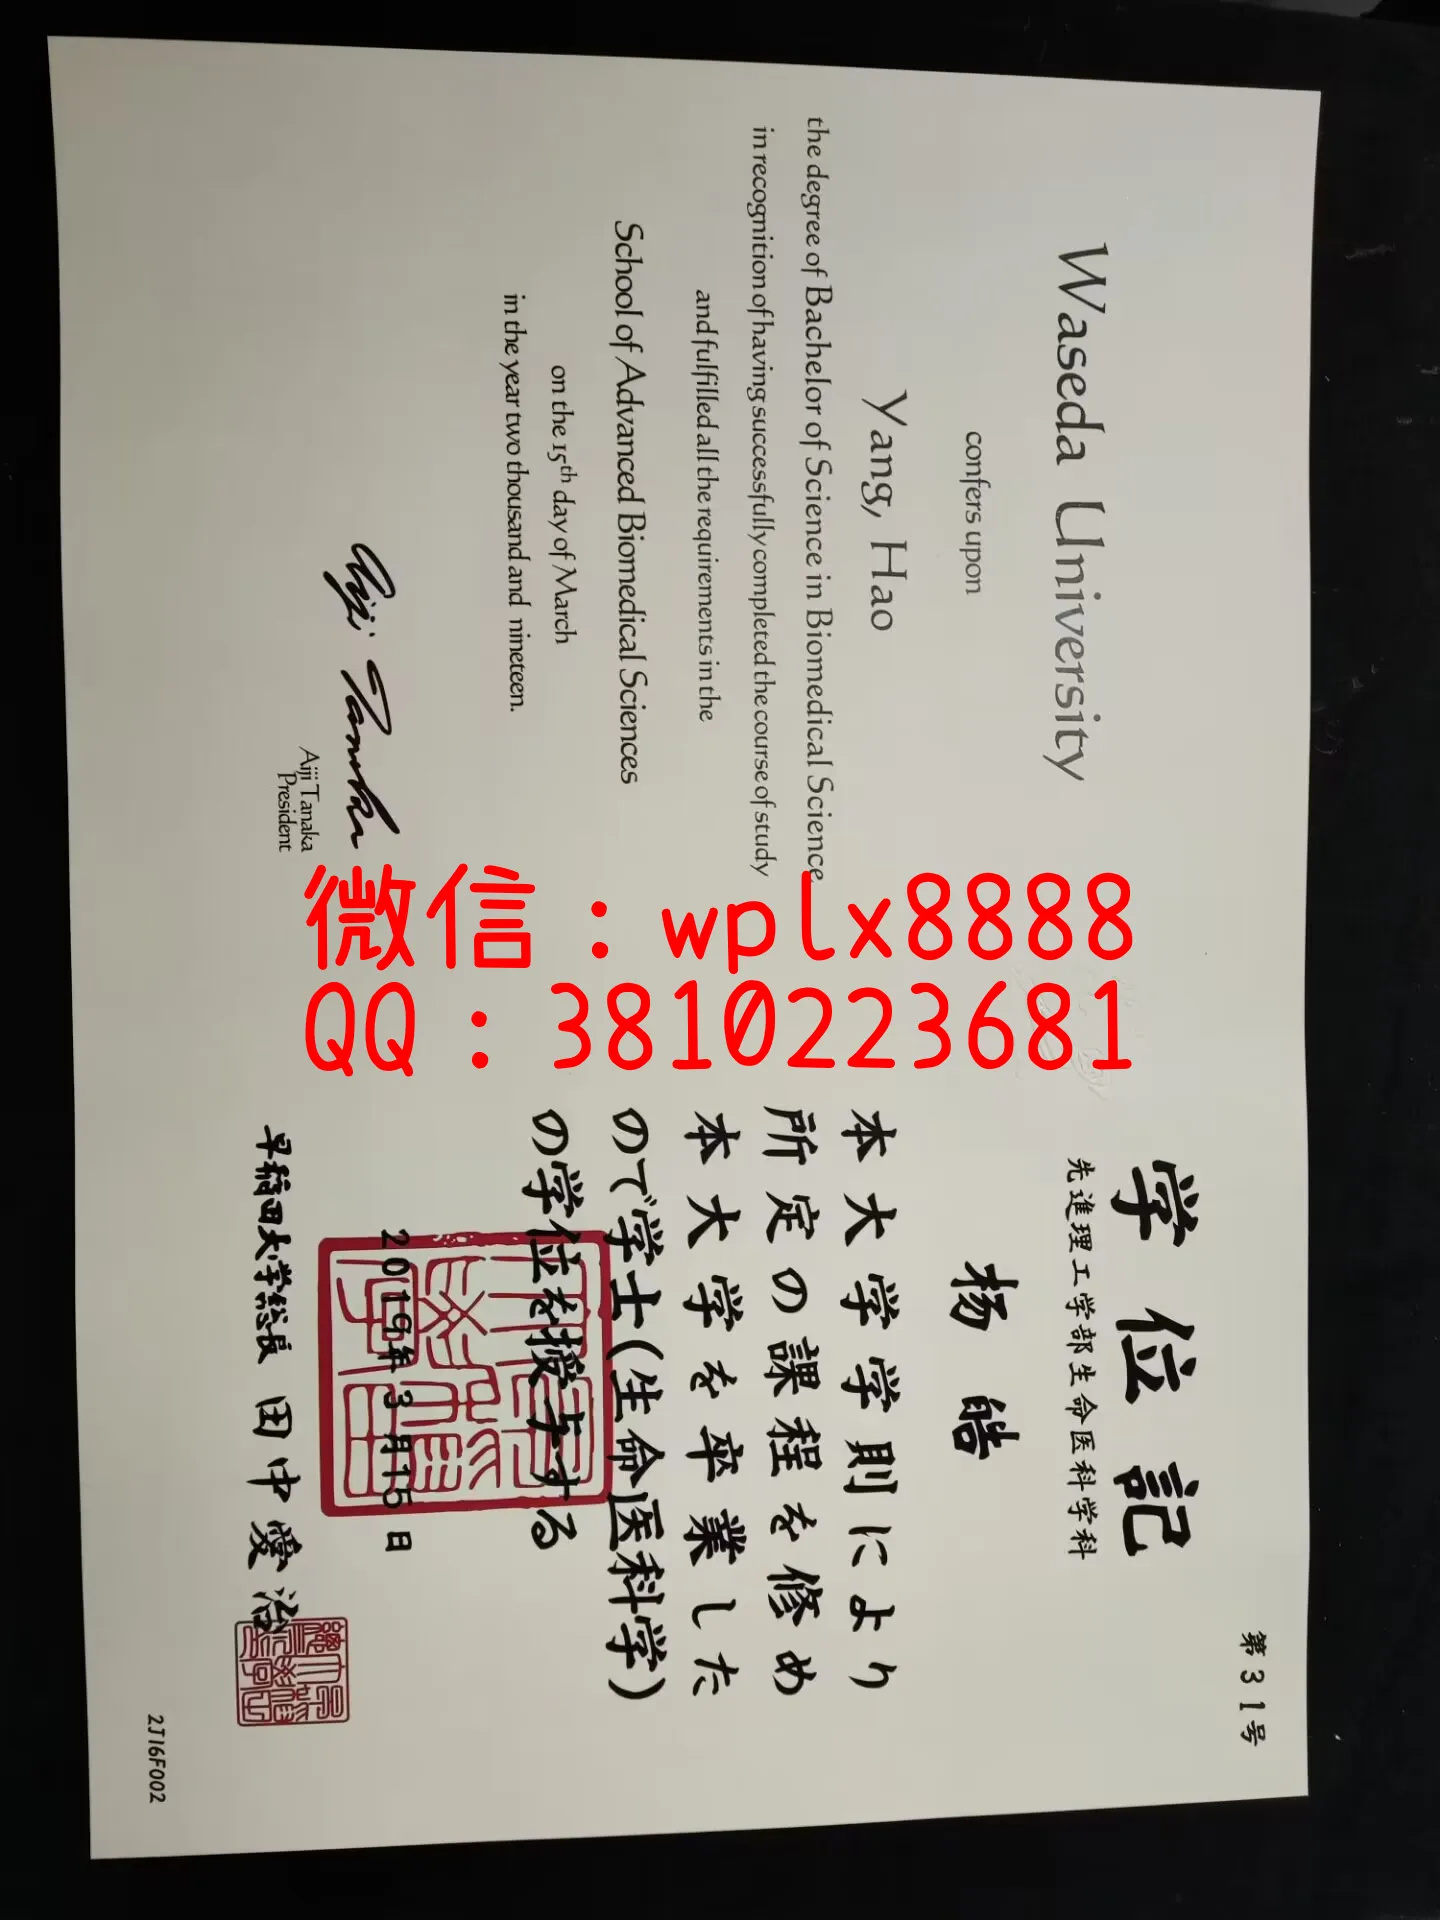 Waseda University
confers upon
Yang, Hao
the degree of Bachelor of Science in Biomedical Science
in recognition of having successfully completed the course of study
and fulfilled all the requirements in the
School of Advanced Biomedical Sciences
on the 15th day of March
in the year two thousand and nineteen.
Aiji Tanaka
Aiji Tanaka
President
微信：wplx8888
QQ：3810223681
第31号
学位記
先進理工学部生命医科学科
杨皓
本大学学則により
所定の課程を修め
本大学を卒業した
ので学士(生命医科学)
の学位を授与する
2019年3月15日
早稲田大学総長 田中愛治
2J16F002